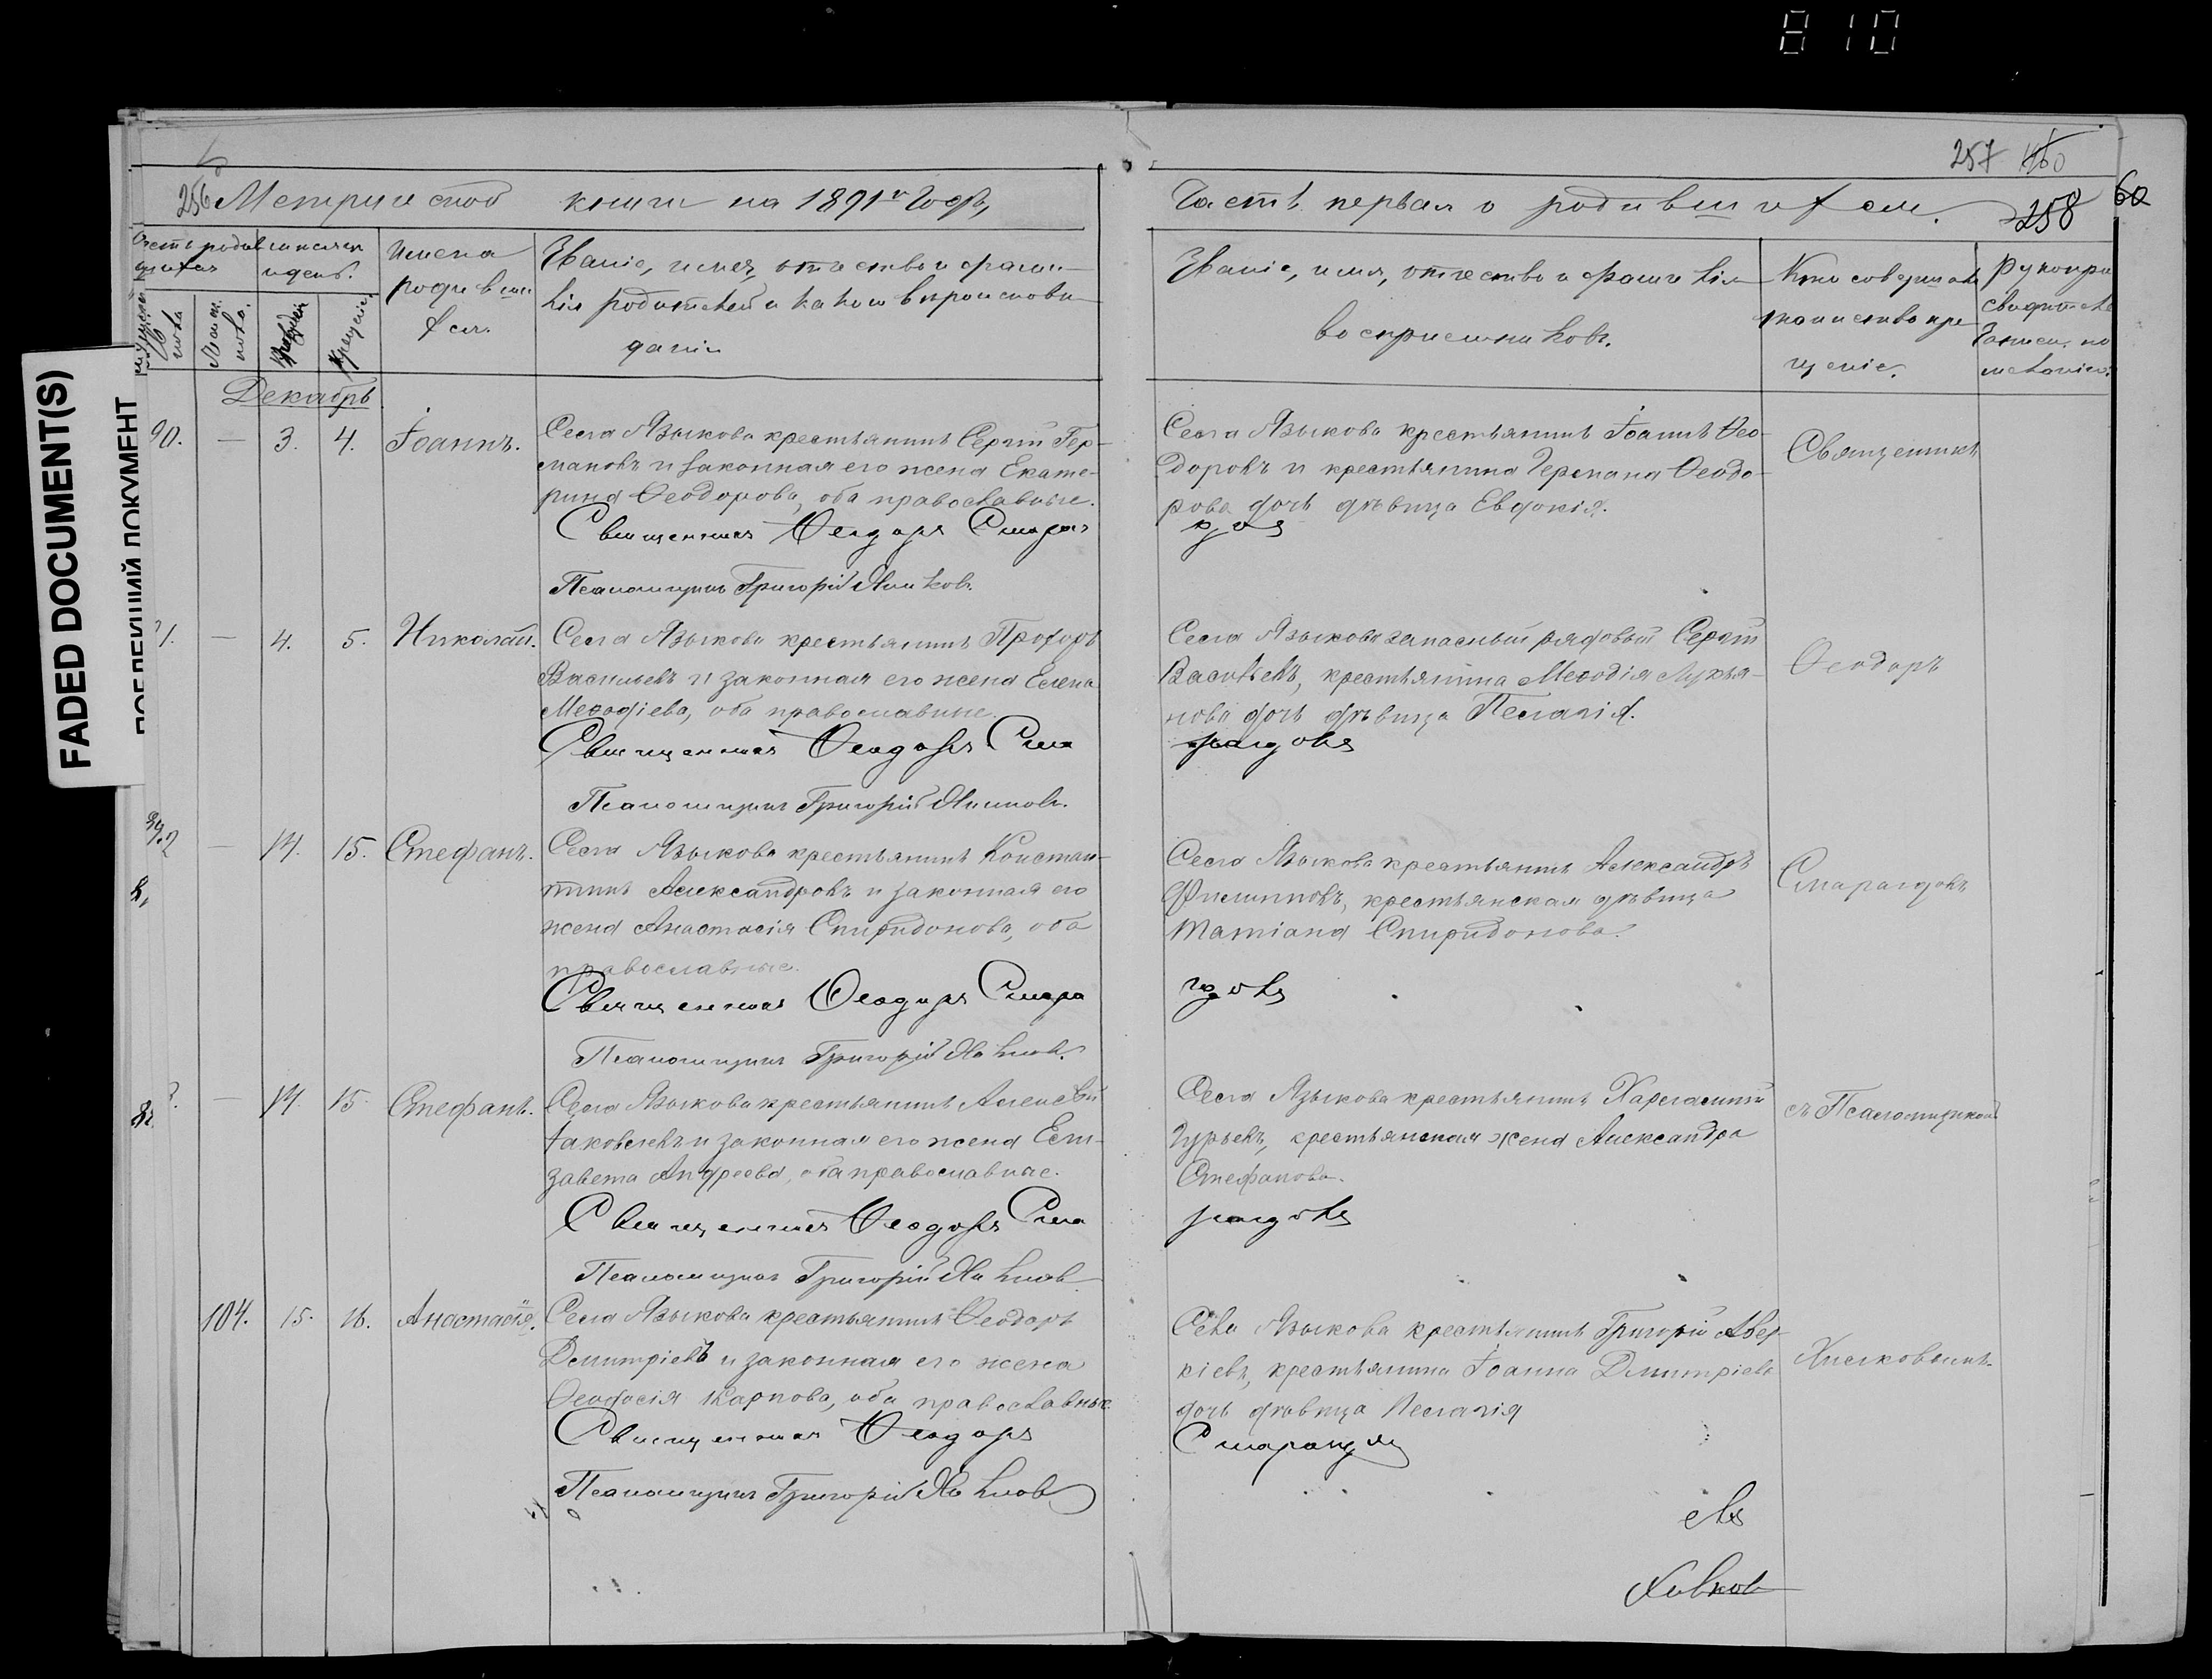 810
257 160
256 Метрической книги на 1891й Годъ,
Часть первая о родившихся. 258 60
Счетъ родив-
шихся
Мѣсяцъ
и день.
Имена
родивши
хся.
Званіе, имя, отчество и фами-
лія родителей и какого вѣроисповѣ-
данія
Званіе, имя, отчество и фамилія
воспріемниковъ.
Кто совершалъ
таинство кре
щенія.
Рукопри
свидѣтеле
записи по
желанію.
Мужеска
пола
Женск.
пола.
Рожденія
Крещенія.
FADED DOCUMENT(S)
Декабрь
90. — 3. 4. Іоаннъ.
Села Языкова крестьянинъ Сергій Гер-
мановъ и законная его жена Екате-
рина Ѳеодорова, оба православные.
Священникъ Ѳеодоръ Смараг
Псаломщикъ Григорій
Села Языкова крестьянинъ Іоаннъ Ѳео-
доровъ и крестьянина Германа Ѳеодо-
рова дочь дѣвица Евдокія.
довъ
Священникъ
1. — 4. 5. Николай.
Села Языкова крестьянинъ Прохоръ
Васильевъ и законная его жена Елена
Меѳодіева, оба православные.
Священникъ Ѳеодоръ Сма
Псаломщикъ Григорій
Села Языкова запасный рядовый Сергій
Васильевъ, крестьянина Меѳодія Лукья-
нова дочь дѣвица Пелагія.
рагдовъ
Ѳеодоръ
92 — 14. 15. Стефанъ.
Села Языкова крестьянинъ Констан-
тинъ Александровъ и законная его
жена Анастасія Спиридонова, оба
православные.
Священникъ Ѳеодоръ Смара
Псаломщикъ Григорій
Села Языкова крестьянинъ Александръ
Филипповъ, крестьянская дѣвица
Татіана Спиридонова.
гдовъ
Смарагдовъ
3. — 14. 15. Стефанъ.
Села Языкова крестьянинъ Алексѣй
Іаковлевъ и законная его жена Ели-
завета Андреева, оба православные.
Священникъ Ѳеодоръ Сма
Псаломщикъ Григорій
Села Языкова крестьянинъ Харлампій
Гурьевъ, крестьянская жена Александра
Стефанова.
рагдовъ
съ Псаломщикомъ
104. 15. 16. Анастасія.
Села Языкова крестьянинъ Ѳеодоръ
Димитріевъ и законная его жена
Ѳеодосія Карпова, оба православные
Священникъ Ѳеодоръ
Псаломщикъ Григорій
Села Языкова крестьянинъ Григорій Авер-
кіевъ, крестьянина Іоанна Дмитріева
дочь дѣвица Пелагія
Смарагдовъ